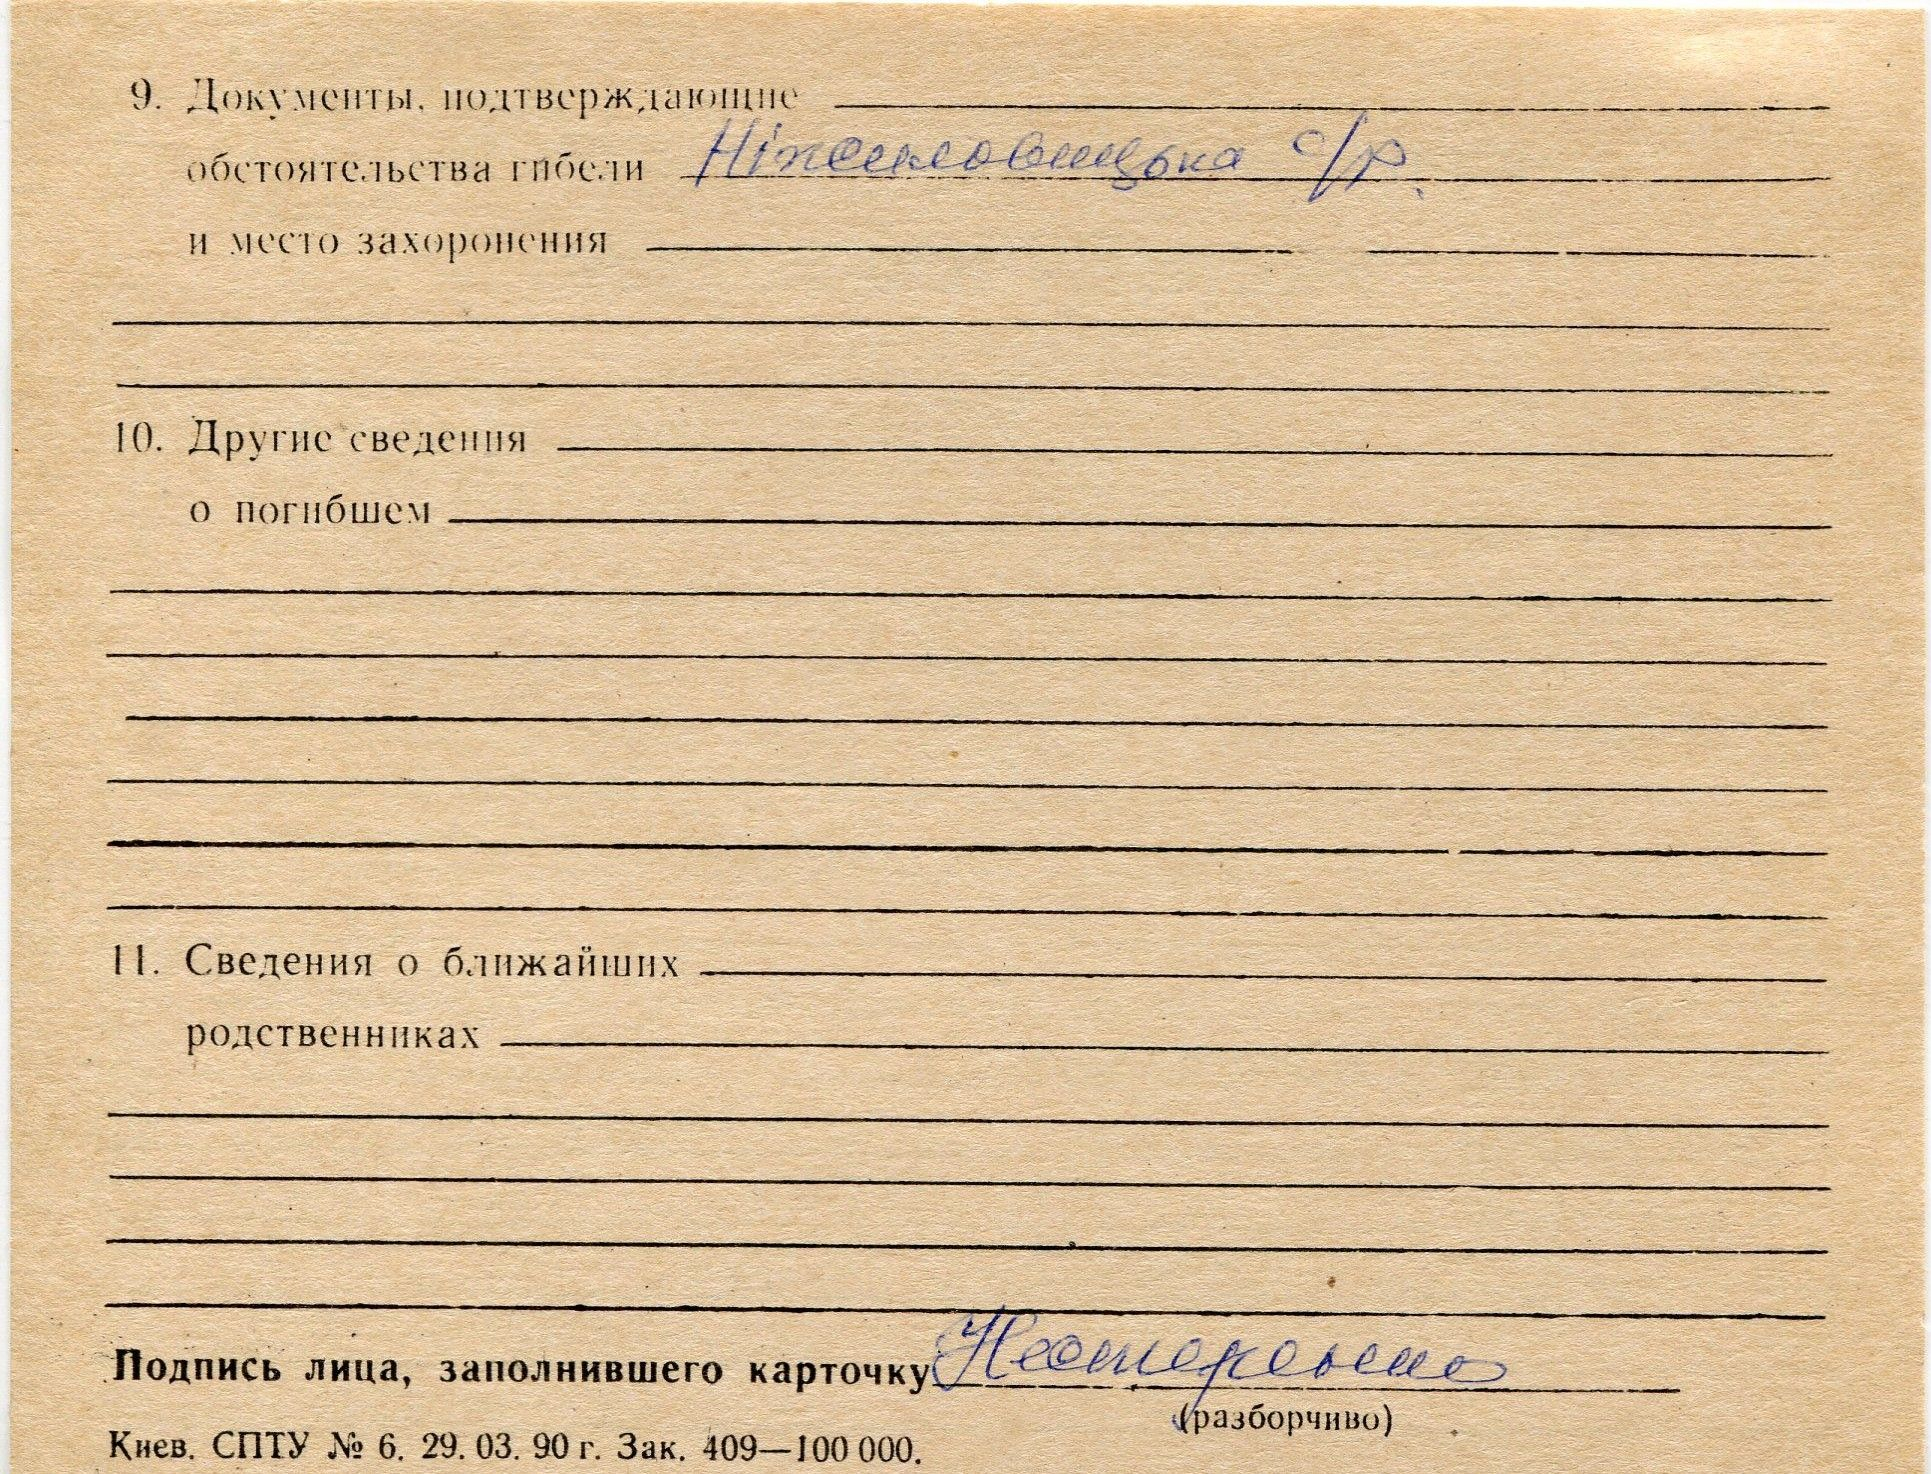 9. Документы, подтверждающие
обстоятельства гибели Ніжиловицька с/р.
и место захоронения
10. Другие сведения
о погибшем
11. Сведения о ближайших
родственниках
Подпись лица, заполнившего карточку
(разборчиво)
Киев. СПТУ № 6. 29. 03. 90 г. Зак. 409—100 000.